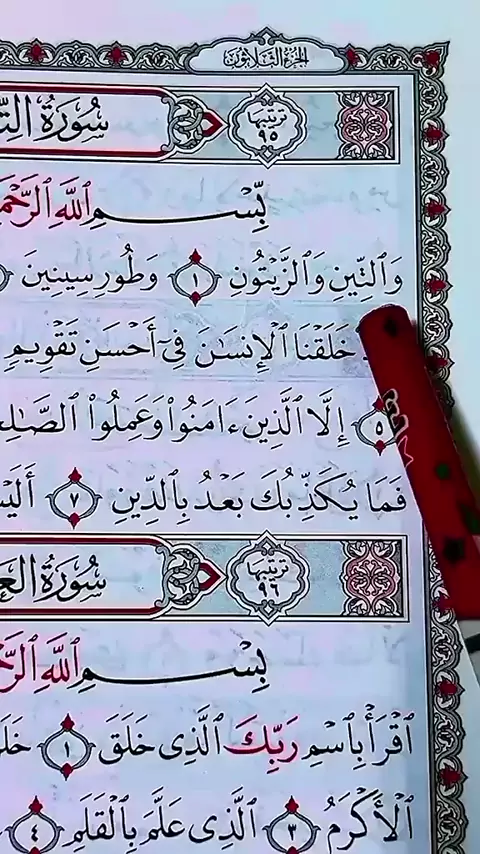 الجزء الثلاثون
سُورَةُ
ترتيبها
٩٥
بِّسْمِ ٱللَّهِ
وَٱلتِّينِ وَٱلزَّيْتُونِ ١ وَطُورِ سِينِينَ
خَلَقْنَا ٱلْإِنسَٰنَ فِىٓ أَحْسَنِ تَقْوِيمٍ
٥ إِلَّا ٱلَّذِينَ ءَامَنُوا۟ وَعَمِلُوا۟
فَمَا يُكَذِّبُكَ بَعْدُ بِٱلدِّينِ ٧
سُورَةُ
ترتيبها
٩٦
بِسْمِ ٱللَّهِ
ٱقْرَأْ بِٱسْمِ رَبِّكَ ٱلَّذِى خَلَقَ ١
ٱلْأَكْرَمُ ٣ ٱلَّذِى عَلَّمَ بِٱلْقَلَمِ ٤